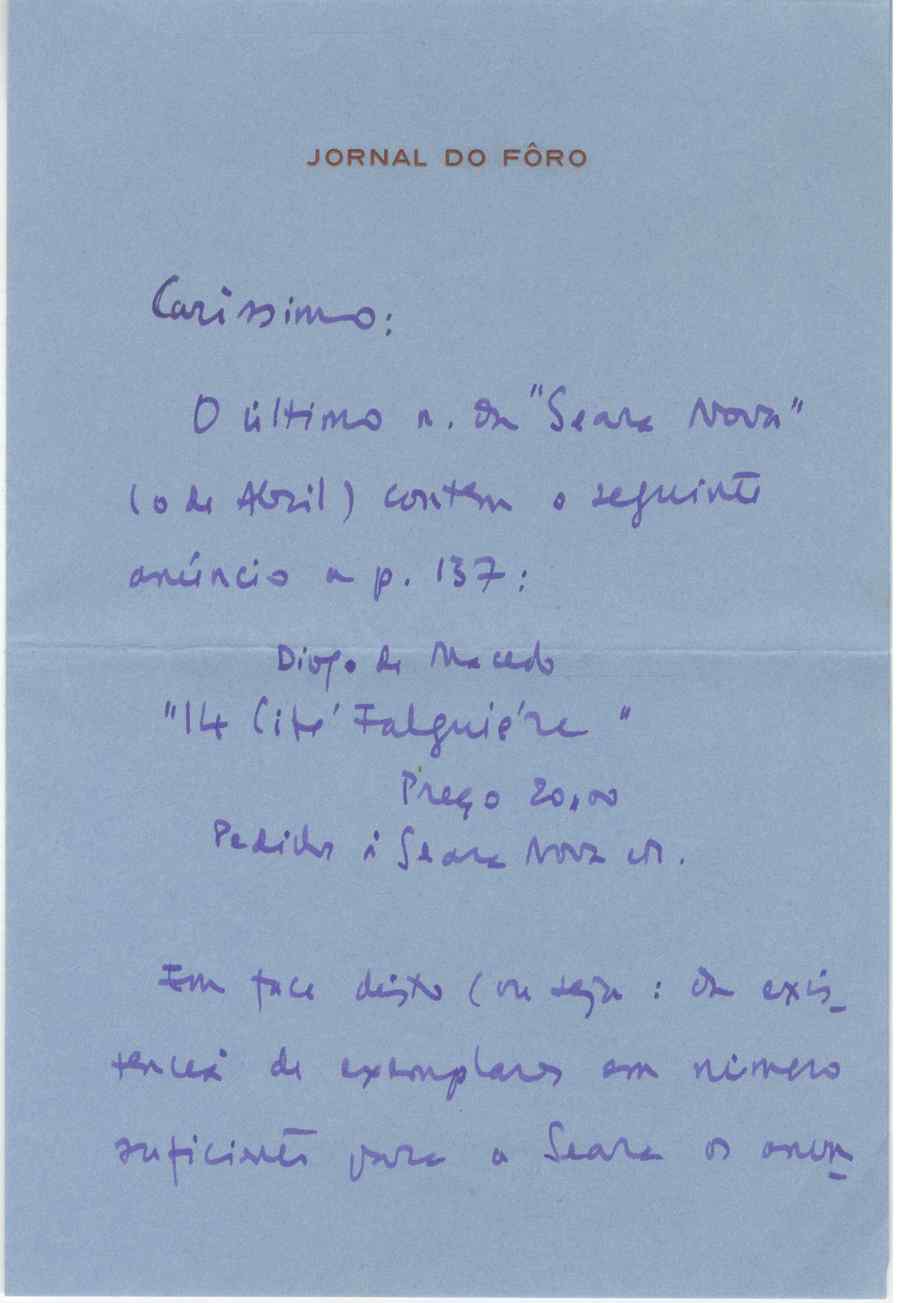 JORNAL DO FÔRO
Caríssimo:
O último n. da "Seara Nova"
(o de Abril) contém o seguinte
anúncio a p. 137:
Diogo de Macedo
"14 Cité Falguière"
Preço 20,00
Pedidos à Seara Nova etc.
Em face disto (ou seja: da exis-
tência de exemplares em número
suficiente para a Seara os anun-